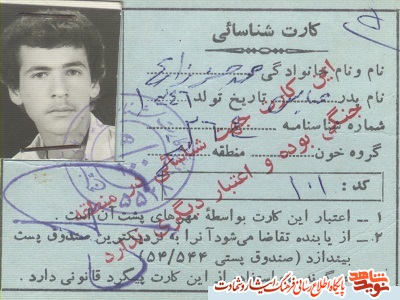 کارت شناسائی
نام و نام خانوادگی محمد حسین
نام پدر عباس تاریخ تولد ۱۳۴۶
شماره شناسنامه
گروه خون منطقه
کد : ۱۰۱
این کارت جهت شناسائی در منطقه
جنگی بوده و اعتبار دیگری ندارد
۱ ــ اعتبار این کارت بواسطه مهرهای پشت آن است .
۲ ــ از یابنده تقاضا میشود آنرا به نزدیکترین صندوق پست
بیندازد (صندوق پستی ۵۴/۵۴۴)
از این کارت پیگرد قانونی دارد .
نوید شاهد
پایگاه اطلاع رسانی فرهنگ ایثار و شهادت